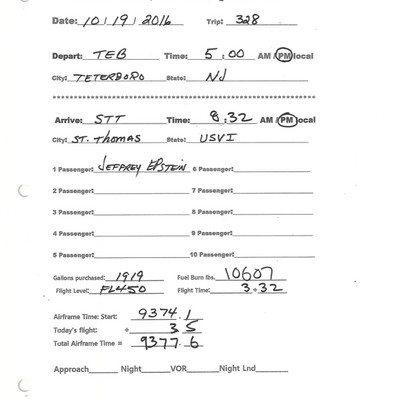 Date: 10/19/2016 Trip: 328
Depart: TEB Time: 5:00 AM/PM local
City: TETERBORO State: NJ
Arrive: STT Time: 8:32 AM/PM local
City: ST. THOMAS State: USVI
1 Passenger: JEFFREY EPSTEIN 6 Passenger:
2 Passenger: 7 Passenger:
3 Passenger: 8 Passenger:
4 Passenger: 9 Passenger:
5 Passenger: 10 Passenger:
Gallons purchased: 1919 Fuel Burn lbs. 10607
Flight Level: FL450 Flight Time: 3+32
Airframe Time: Start: 9374.1
Today's flight: + 3.5
Total Airframe Time = 9377.6
Approach Night VOR Night Lnd